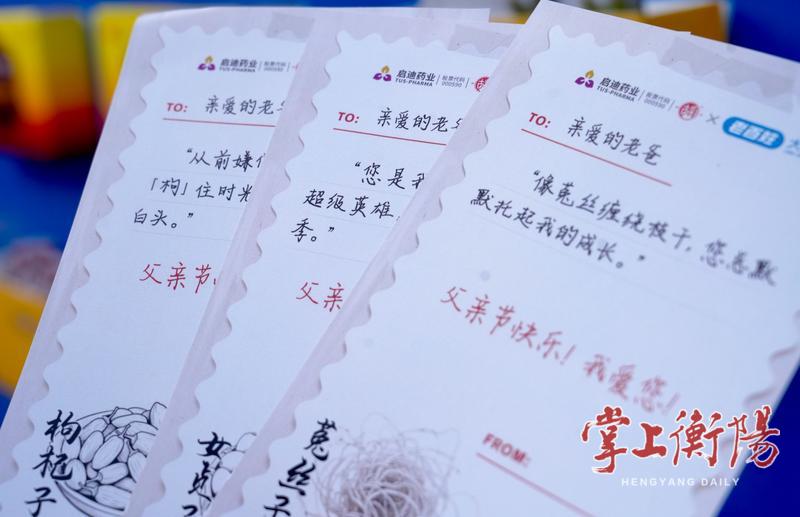 启迪药业
TUS-PHARMA
股票代码
000590
TO: 亲爱的老爸
“从前嫌
「枸」住时光
白头。”
父亲节
枸杞子
启迪药业
TUS-PHARMA
股票代码
000590
TO: 亲爱的老爸
“您是我
超级英雄,
季。”
父亲
女贞子
启迪药业
TUS-PHARMA
股票代码
000590
×
TO: 亲爱的老爸
“像菟丝缠绕枝干,您总默
默托起我的成长。”
父亲节快乐!我爱您!
FROM:
菟丝子
掌上衡陽
HENGYANG DAILY